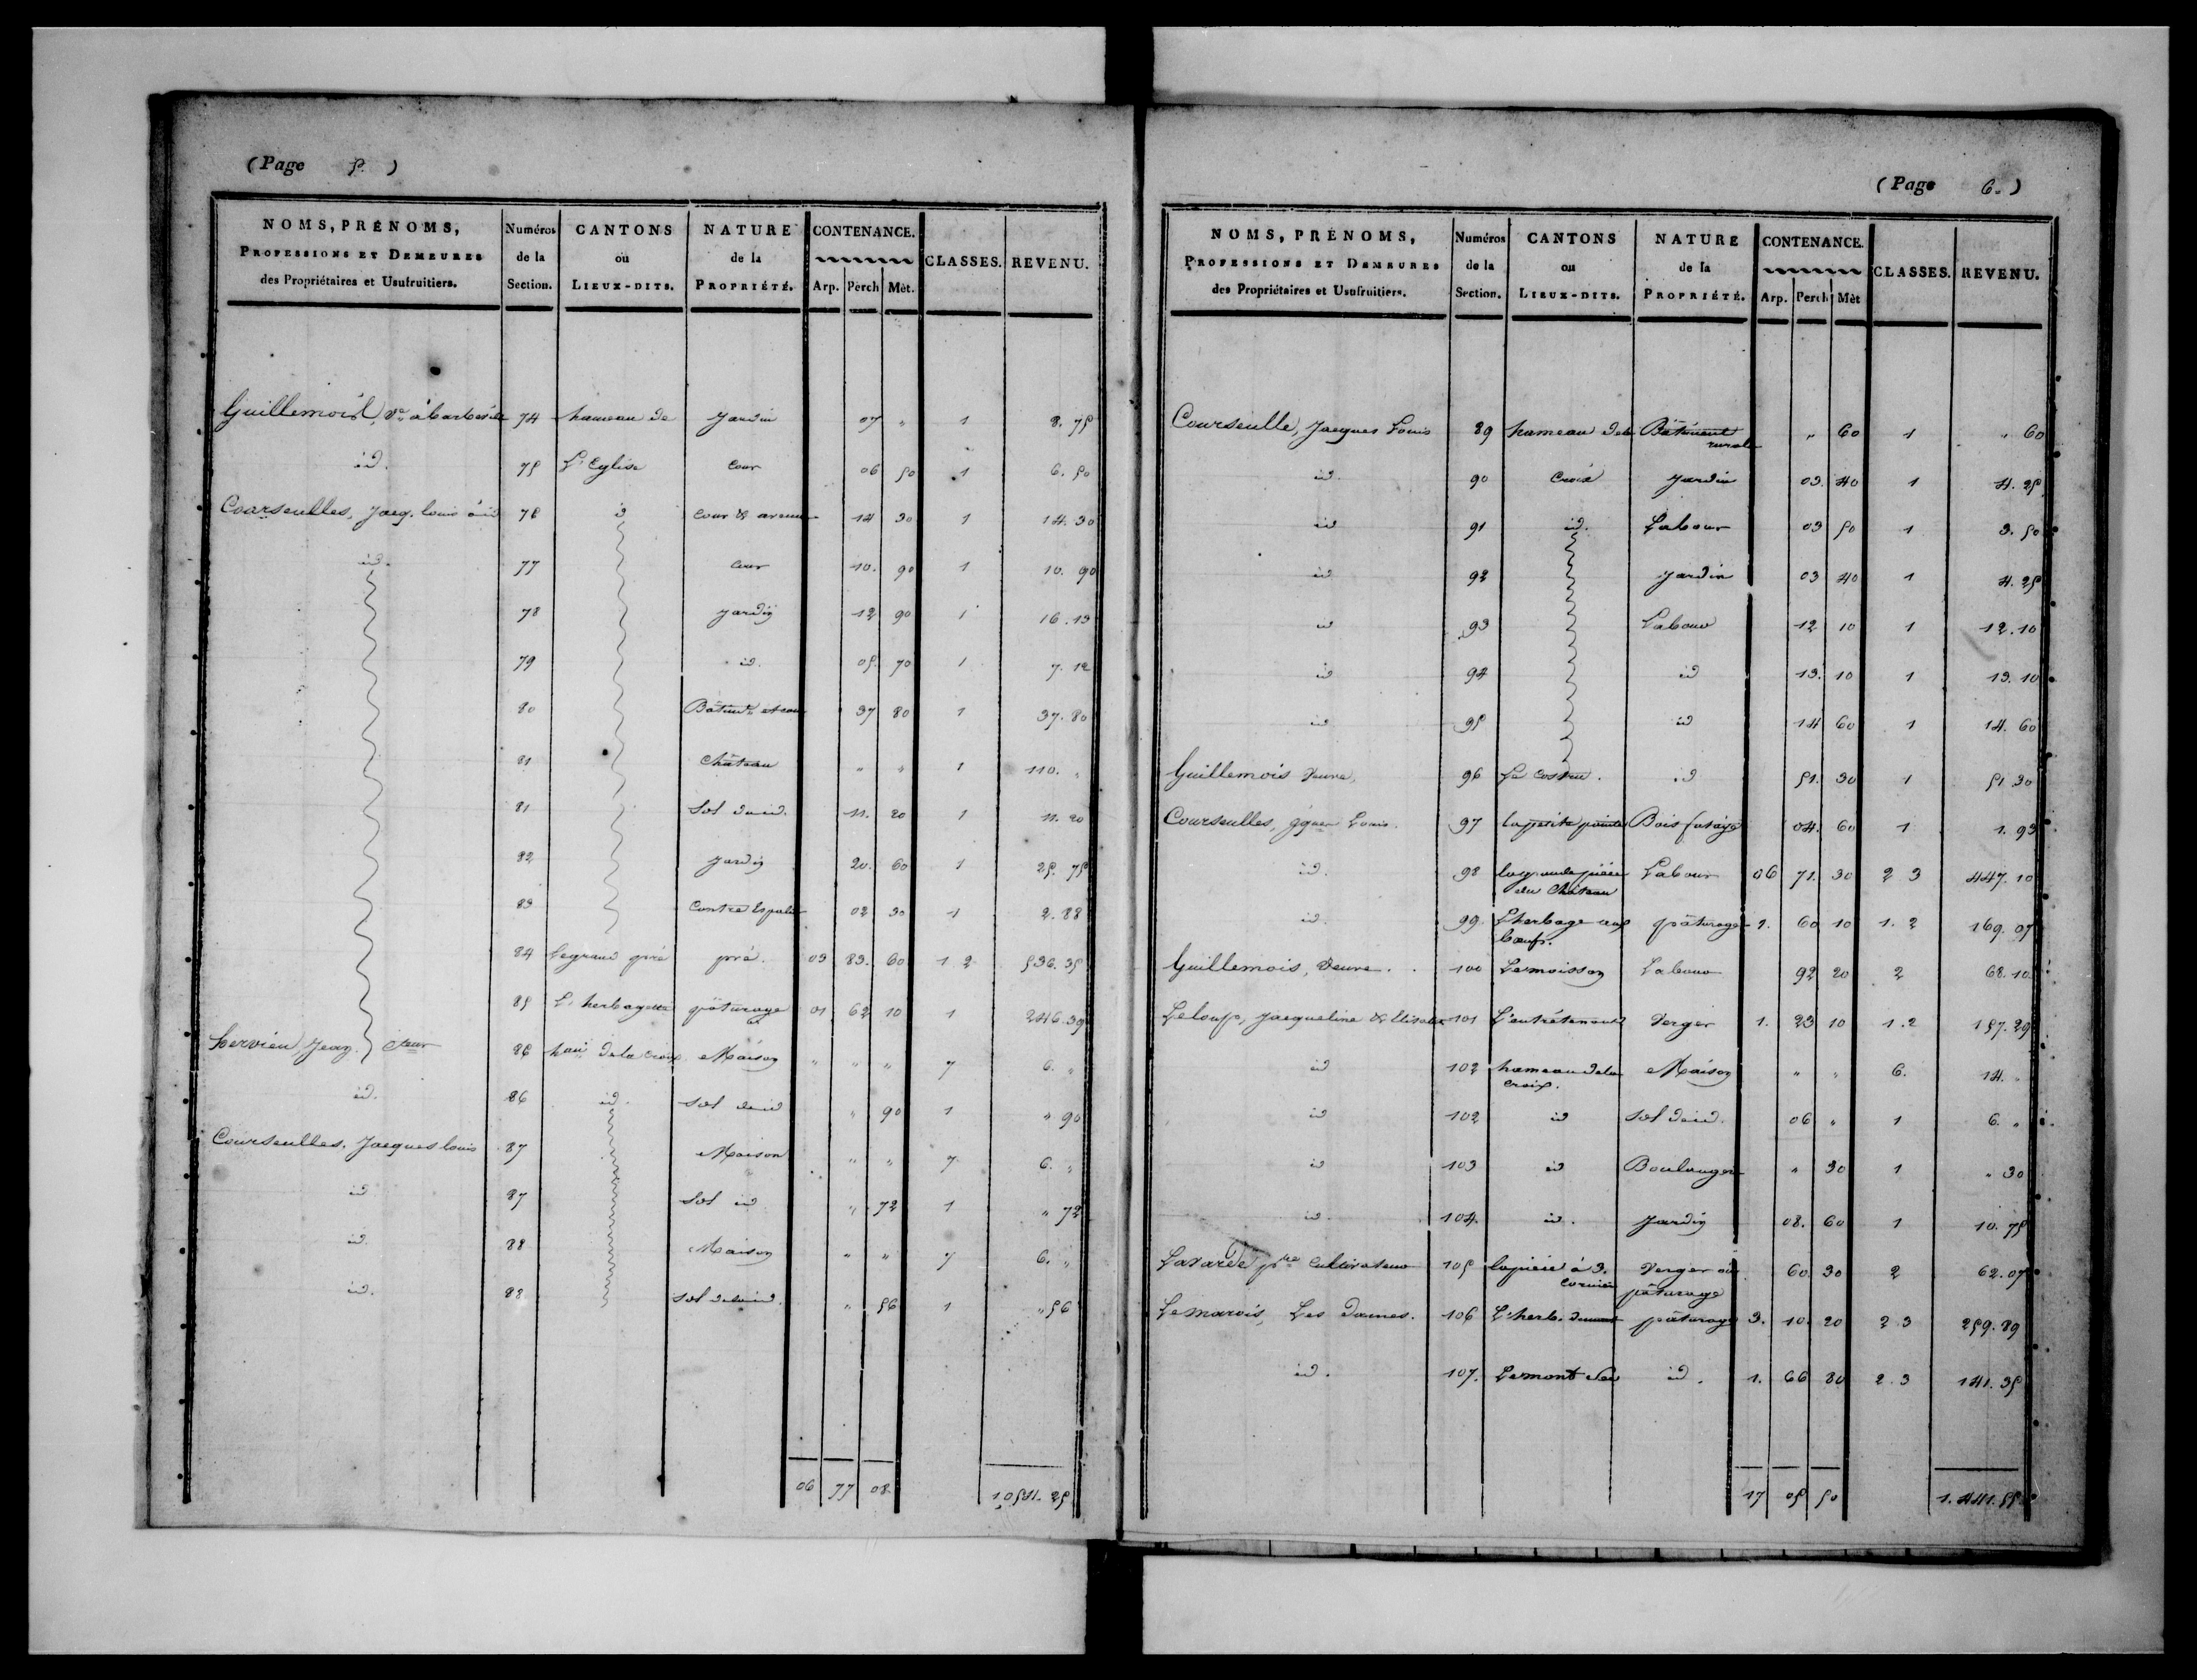 (Page 5.)
NOMS, PRÉNOMS, PROFESSIONS ET DEMEURES des Propriétaires et Usufruitiers. Numéros de la Section. CANTONS ou LIEUX-DITS. NATURE de la PROPRIÉTÉ. CONTENANCE. Arp. Perch Mèt. CLASSES. REVENU.
74 hameau de Jardin 07 " 1 8. 75
id. 75 L'Eglise Cour 06 50 1 6. 50
Courseulles, Jacq. louis à id 76 id Cour & avenue 14 30 1 14. 30
id. 77 Cour 10. 90 1 10. 90
78 Jardin 12 90 1 16. 13
79 id. 05. 70 1 7. 12
80 37 80 1 37. 80
81 Château " " 1 110. "
81 Sol du id. 11. 20 1 11. 20
82 Jardin 20. 60 1 25. 75
83 Contre Espalier 02 30 1 2. 88
84 Le grand pré pré. 03 83. 60 1 2 536. 35
85 L'herbagette pâturage 01 62 10 1 246. 39
Hervieu Jean 86 hau de la Croix Maison " " " 7 6. "
id. 86 id. Sol de id " 90 1 " 90
Courseulles. Jacques louis 87 Maison " " 7 6. "
id 87 Sol id " 72 1 " 72
id. 88 Maison " " 7 6. "
id. 88 " 56 1 " 56
06 77 08 1,054. 25
(Page 6.)
NOMS, PRÉNOMS, PROFESSIONS ET DEMEURES des Propriétaires et Usufruitiers. Numéros de la Section. CANTONS ou LIEUX-DITS. NATURE de la PROPRIÉTÉ. CONTENANCE. Arp. Perch Mèt CLASSES. REVENU.
Courseulle, Jacques Louis 89 hameau de la Bâtiment rural " 60 1 " 60
id. 90 Croix Jardin 03. 40 1 4. 25
id 91 id. Labour 03 50 1 3. 50
id 92 Jardin 03 40 1 4. 25
id 93 Labour 12 10 1 12. 10
id 94 id 13. 10 1 13. 10
id 95 id 14 60 1 14. 60
Guillemois Veuve, 96 id 51. 30 1 51 30
Courseulles, Louis. 97 la petite pointe Bois futaye 04. 60 1 1. 93
id. 98 la grande pièce du Château Labour 06 71. 30 2 3 447. 10
id. 99. L'herbage aux bœufs. pâturage 1. 60 10 1. 2 169. 07
Guillemois, Veuve. 100 Le moisson Labour 92 20 2 68. 10
Leloup, Jacqueline 101 Verger 1. 23 10 1. 2 157. 29
id 102 hameau de la croix. Maison " " 6. 14. "
id 102 id Sol de id. 06 " 1 6. "
id 103 id " 30 1 " 30
id. 104. id. Jardin 08. 60 1 10. 75
Lavarde Cultivateur 105 la pièce à 3. Verger ou pâturage 60. 30 2 62. 07
Lemarois, Les Dames. 106 pâturage 3. 10. 20 2. 3 259. 89
id. 107. id. 1. 66 80 2. 3 141. 35
17 05 50 1. 441. 55